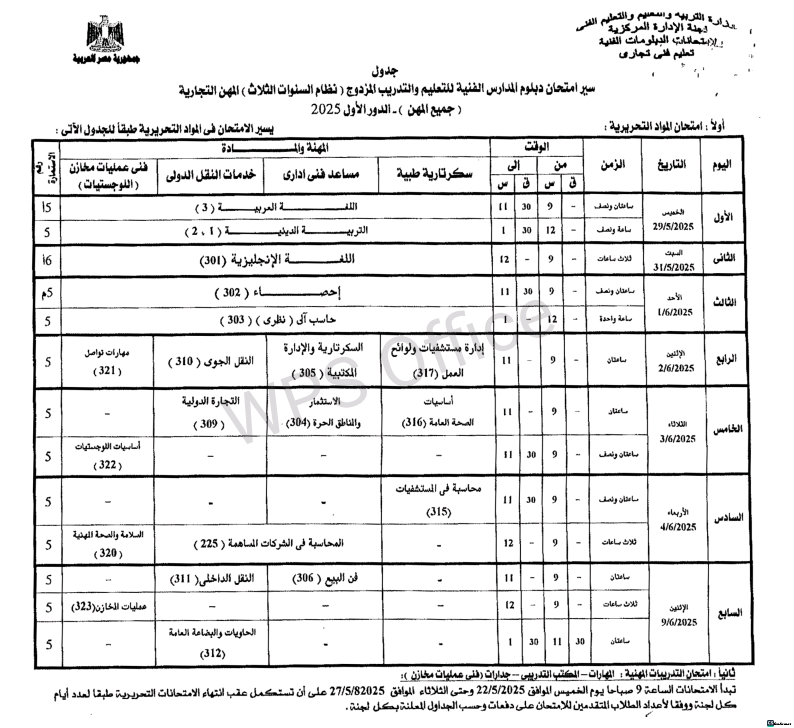 وزارة التربية والتعليم والتعليم الفنى
لجنة الإدارة المركزية
لامتحانات الدبلومات الفنية
تعليم فنى تجارى
جمهورية مصر العربية
جدول
سير امتحان دبلوم المدارس الفنية للتعليم والتدريب المزدوج ( نظام السنوات الثلاث ) المهن التجارية
( جميع المهن ) ـ الدور الأول 2025
أولاً : امتحان المواد التحريرية : يسير الامتحان فى المواد التحريرية طبقاً للجدول الآتى :
اليوم التاريخ الزمن الوقت المهنة والمـــادة رقم الاستمارة
من إلى
ق س ق س
سكرتارية طبية مساعد فنى ادارى خدمات النقل الدولى فنى عمليات مخازن (اللوجستيات)
الأول الخميس 29/5/2025 ساعتان ونصف - 9 30 11 اللغـــة العربيـــة ( 3 ) 15
ساعة ونصف - 12 30 1 التربيـــة الدينيـــة ( 1 ، 2 ) 5
الثانى السبت 31/5/2025 ثلاث ساعات - 9 - 12 اللغـــة الإنجليزية (301) 16
الثالث الأحد 1/6/2025 ساعتان ونصف - 9 30 11 إحصـــاء ( 302 ) 5م
ساعة واحدة - 12 - 1 حاسب آلى ( نظرى ) ( 303 ) 5
الرابع الإثنين 2/6/2025 ساعتان - 9 - 11 إدارة مستشفيات ولوائح العمل (317) السكرتارية والإدارة المكتبية ( 305 ) النقل الجوى ( 310 ) مهارات تواصل (321) 5
الخامس الثلاثاء 3/6/2025 ساعتان - 9 - 11 أساسيات الصحة العامة (316) الاستثمار والمناطق الحرة (304) التجارة الدولية ( 309 ) - 5
ساعتان ونصف - 9 30 11 - - - أساسيات اللوجستيات ( 322 ) 5
السادس الأربعاء 4/6/2025 ساعتان ونصف - 9 30 11 محاسبة فى المستشفيات (315) - - - 5
ثلاث ساعات - 9 - 12 - المحاسبة فى الشركات المساهمة ( 225 ) السلامة والصحة المهنية ( 320 ) 5
السابع الإثنين 9/6/2025 ساعتان - 9 - 11 - فن البيع ( 306 ) النقل الداخلى ( 311 ) - 5
ثلاث ساعات - 9 - 12 - - - عمليات المخازن(323) 5
ساعتان 30 11 30 1 - - الحاويات والبضاعة العامة (312) - 5
ثانياً : امتحان التدريبات المهنية : المهارات – المكتب التدريبى – جدارات (فنى عمليات مخازن ) :
تبدأ الامتحانات الساعة 9 صباحا يوم الخميس الموافق 22/5/2025 وحتى الثلاثاء الموافق 27/5/82025 على أن تستكمل عقب انتهاء الامتحانات التحريرية طبقا لعدد أيام
كل لجنة ووفقا لأعداد الطلاب المتقدمين للامتحان على دفعات وحسب الجداول المعلنة بكل لجنة .
WPS Office